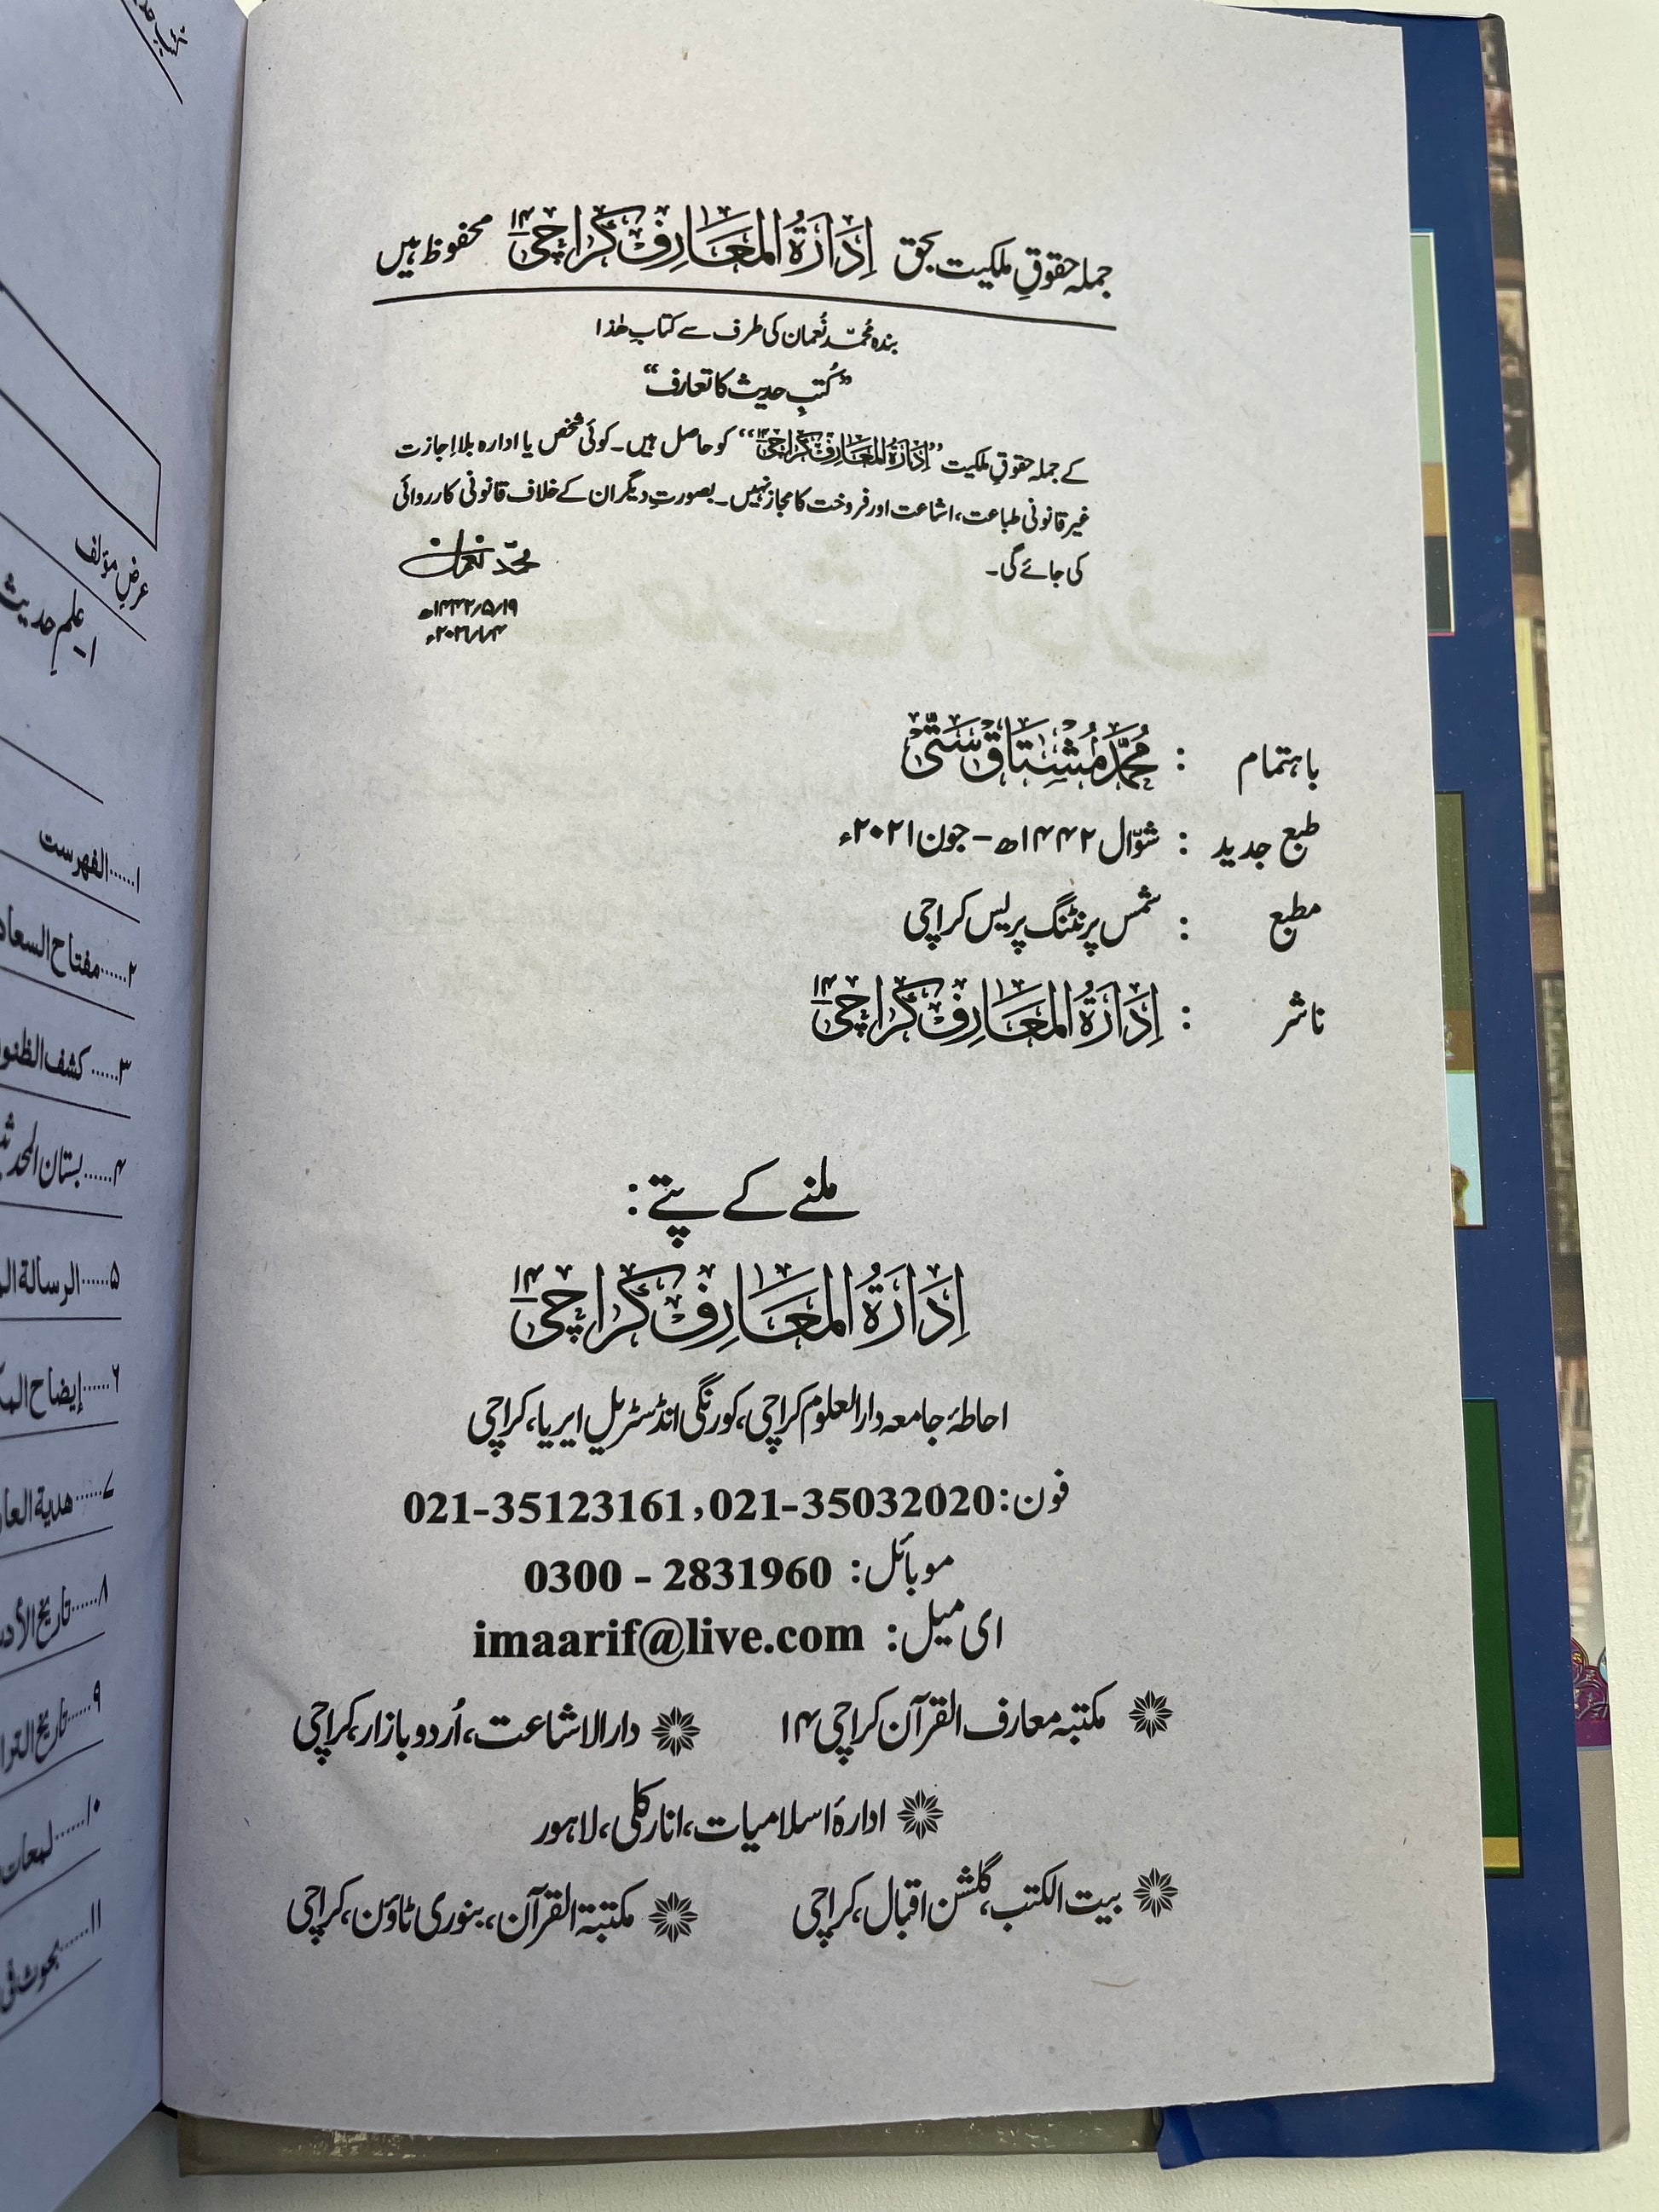 جملہ حقوقِ ملکیت بحق اِدَارَۃُ المَعَارِف کَراچی ۱۴ محفوظ ہیں
بندہ محمّد نُعمان کی طرف سے کتابِ ھٰذا
”کُتبِ حدیث کا تعارف“
کے جملہ حقوقِ ملکیت ”اِدَارَۃُ المَعَارِف کَراچی ۱۴“ کو حاصل ہیں۔ کوئی شخص یا ادارہ بلا اِجازت
غیر قانونی طباعت، اشاعت اور فروخت کا مجاز نہیں۔ بصورتِ دیگر ان کے خلاف قانونی کارروائی
کی جائے گی۔
محمّد نعمان
۱۴۴۲/۵/۱۹ھ
۲۰۲۱/۱/۴ء
باہتمام : مُحَمَّد مُشتَاق سَتّی
طبع جدید : شوّال ۱۴۴۲ھ – جون ۲۰۲۱ء
مطبع : شمس پرنٹنگ پریس کراچی
ناشر : اِدَارَۃُ المَعَارِف کَراچی ۱۴
ملنے کے پتے:
اِدَارَۃُ المَعَارِف کَراچی ۱۴
احاطۂ جامعہ دارالعلوم کراچی، کورنگی انڈسٹریل ایریا، کراچی
فون: 021-35123161, 021-35032020
موبائل: 0300 - 2831960
ای میل: imaarif@live.com
مکتبہ معارف القرآن کراچی ۱۴
دارالاشاعت، اُردو بازار، کراچی
ادارۂ اسلامیات، انارکلی، لاہور
بیت الکتب، گلشن اقبال، کراچی
مکتبۃ القرآن، بنوری ٹاؤن، کراچی
عرضِ مؤلف
۱۔ علم حدیث
۱......الفهرست
۲......مفتاح
۳......کشف
۴......بستان
۵......الرسالة
۶......إيضاح
۷......هدية
۸......تاريخ
۹......تاريخ
۱۰......لمعات
۱۱......بحوث في